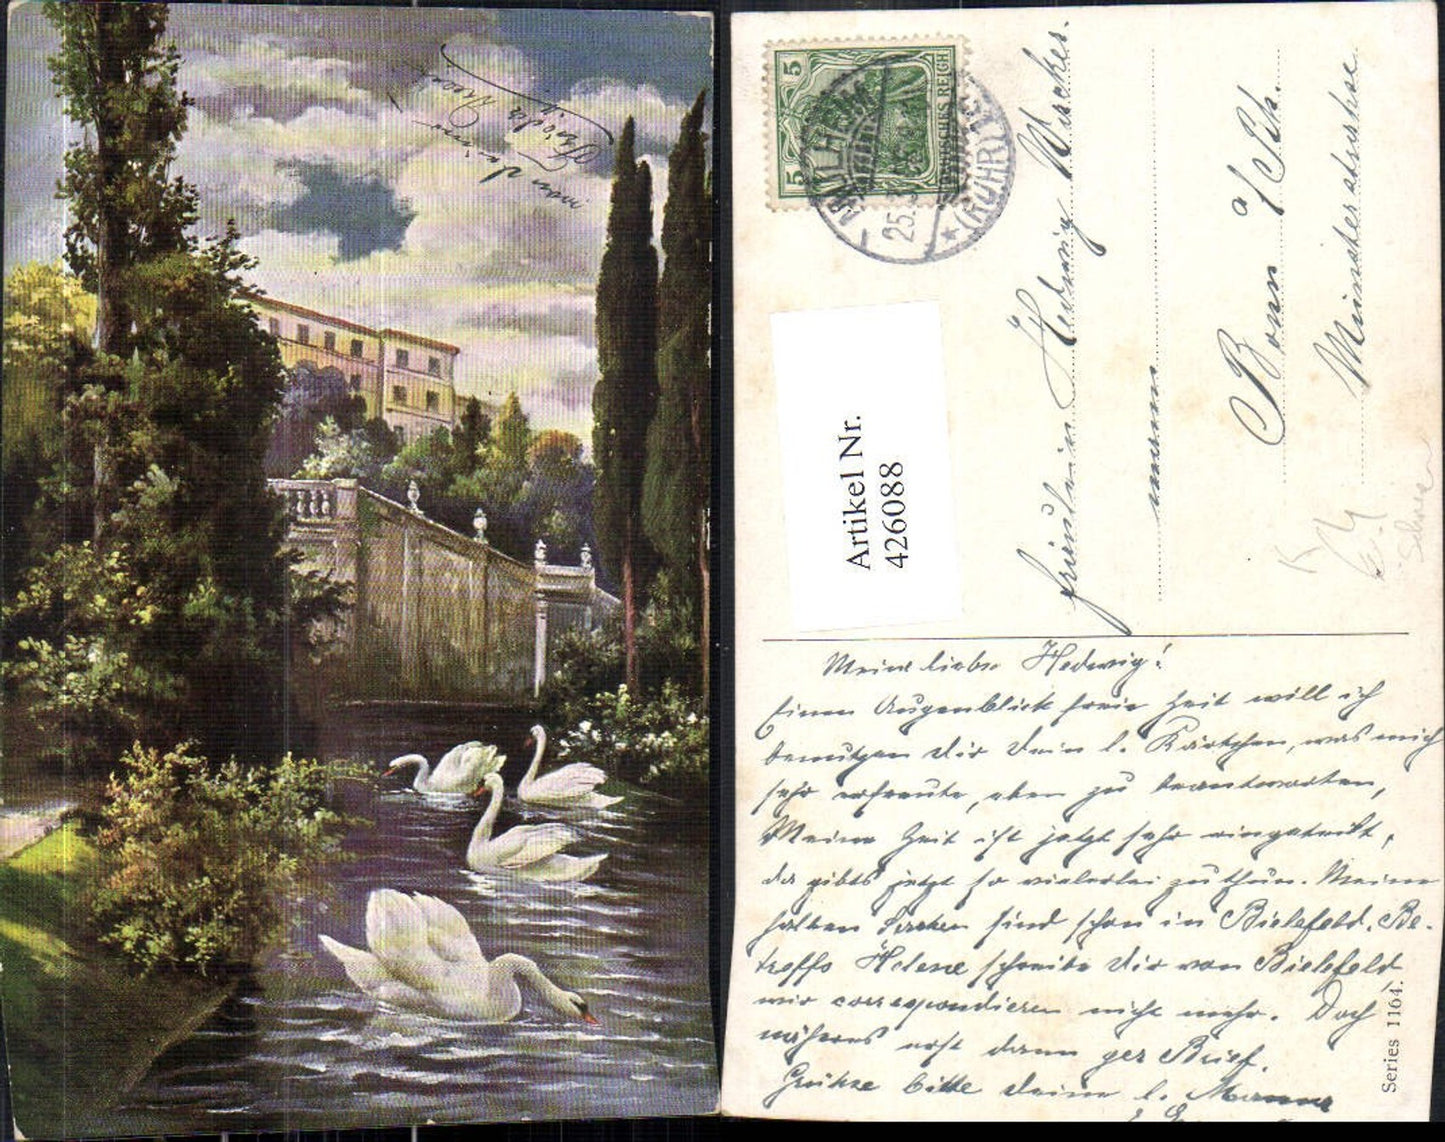 von deiner
Frieda
5
5
DEUTSCHES REICH
MÜLHEIM
(RUHR)
25.
Artikel Nr.
426088
Fräulein Hedwig
Bonn a/Rh.
Münsterstraße
Meine liebe Hedwig!
Einen Augenblick freie Zeit will ich
benutzen dir dein l. Kärtchen, was mich
sehr erfreute, eben zu beantworten,
Meine Zeit ist jetzt sehr eingeteilt,
da gibts jetzt so vielerlei zu thun. Meine
halben Sachen sind schon in Bielefeld. Be-
treffs Helene schreibe dir von Bielefeld
wir correspondieren nicht mehr. Doch
näheres erst dann per Brief.
Grüße bitte deine l. Mamma
Series 1164.